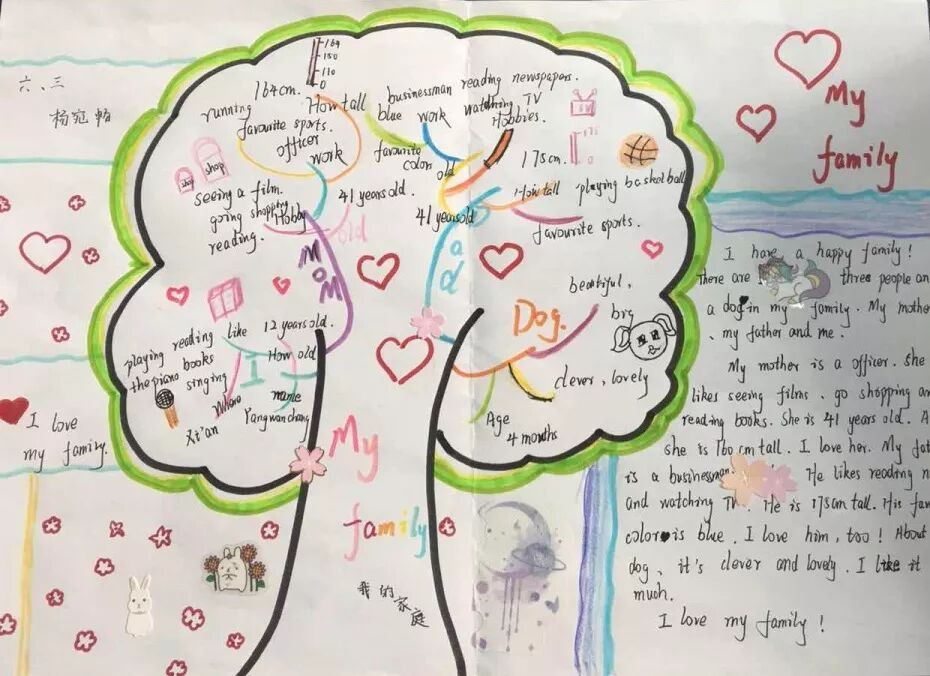 六、三
杨宛畅
I love
my family.
169
150
110
0
164cm.
How tall
running
favourite sports.
officer
work
shop
shop
seeing a film.
going shopping
reading.
Hobby
41 years old.
old
MoM
businessman
reading newspapers.
blue
work
watching TV
Hobbies.
favourite
color
old
175cm.
175
0
41 years old
How tall
playing basketball
favourite sports.
Dad
beautiful,
big
Dog.
clever, lovely
Age
4 months
playing
the piano
reading
books
like
singing
12 years old.
How old
I
Where
name
Xi'an
Yang wan chang
My
family
我的家庭
My
family
I have a happy family!
There are three people an
a dog in my family. My mothe
, my father and me.
My mother is a officer. she
likes seeing films, go shopping an
reading books. She is 41 years old. A
she is 160 cm tall. I love her. My fat
is a businessman. He likes reading n
and watching TV. He is 175cm tall. His fav
color is blue. I love him, too! About
dog, it's clever and lovely. I like it
much.
I love my family!